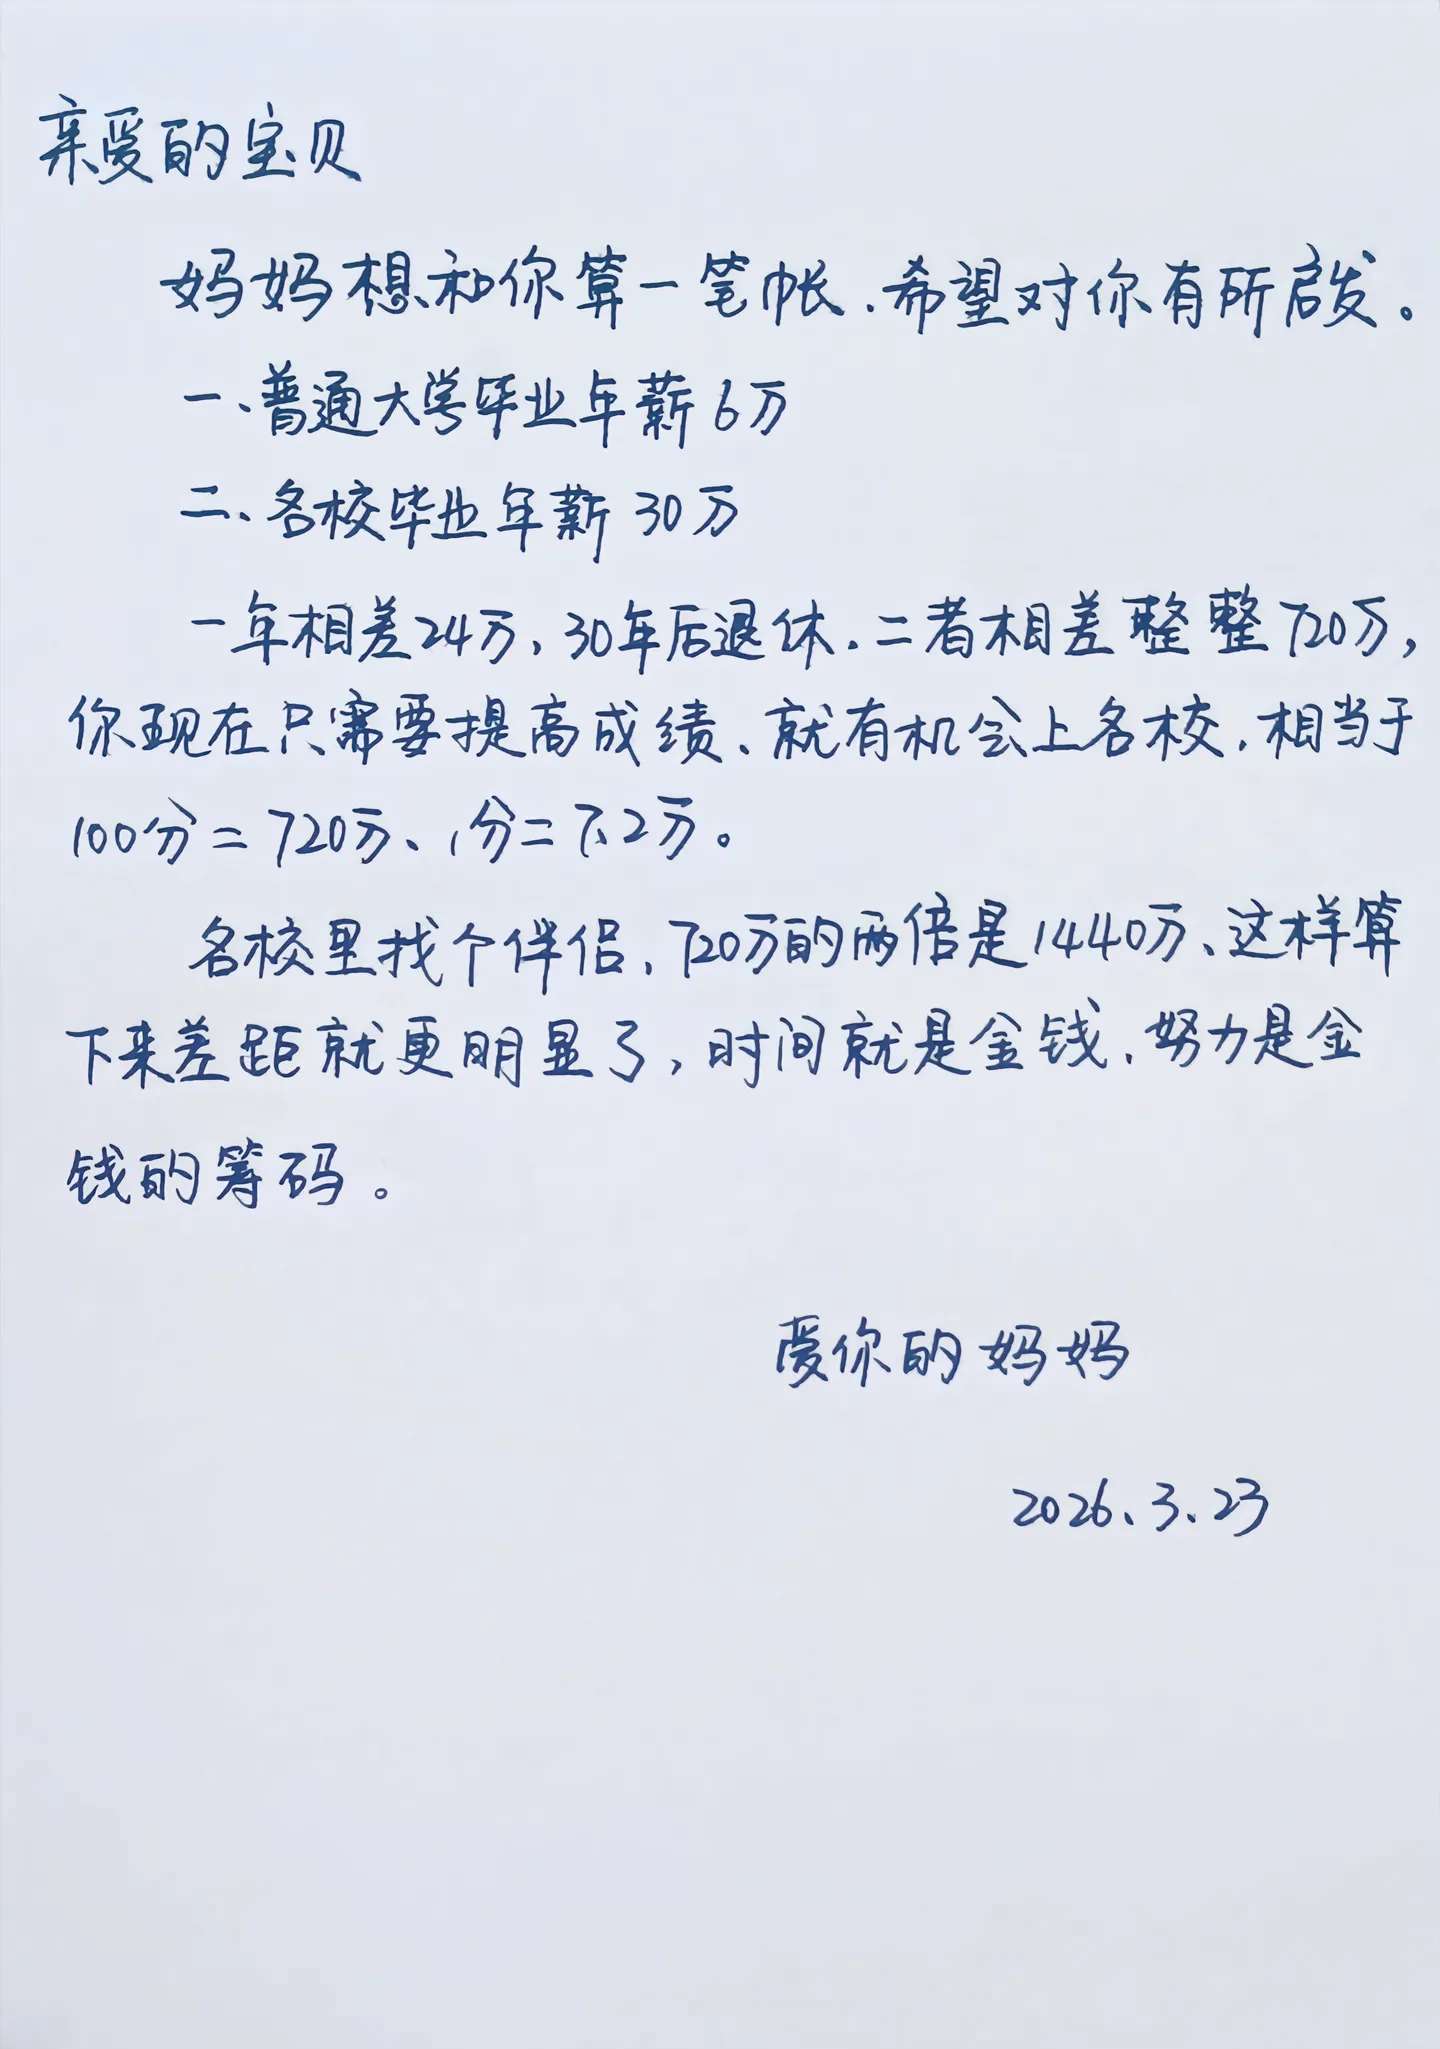 亲爱的宝贝
妈妈想和你算一笔帐.希望对你有所启发。
一、普通大学毕业年薪6万
二、名校毕业年薪30万
一年相差24万,30年后退休.二者相差整整720万,
你现在只需要提高成绩、就有机会上名校.相当于
100分=720万、1分=7.2万。
名校里找个伴侣,720万的两倍是1440万、这样算
下来差距就更明显了,时间就是金钱.努力是金
钱的筹码。
爱你的妈妈
2026.3.23